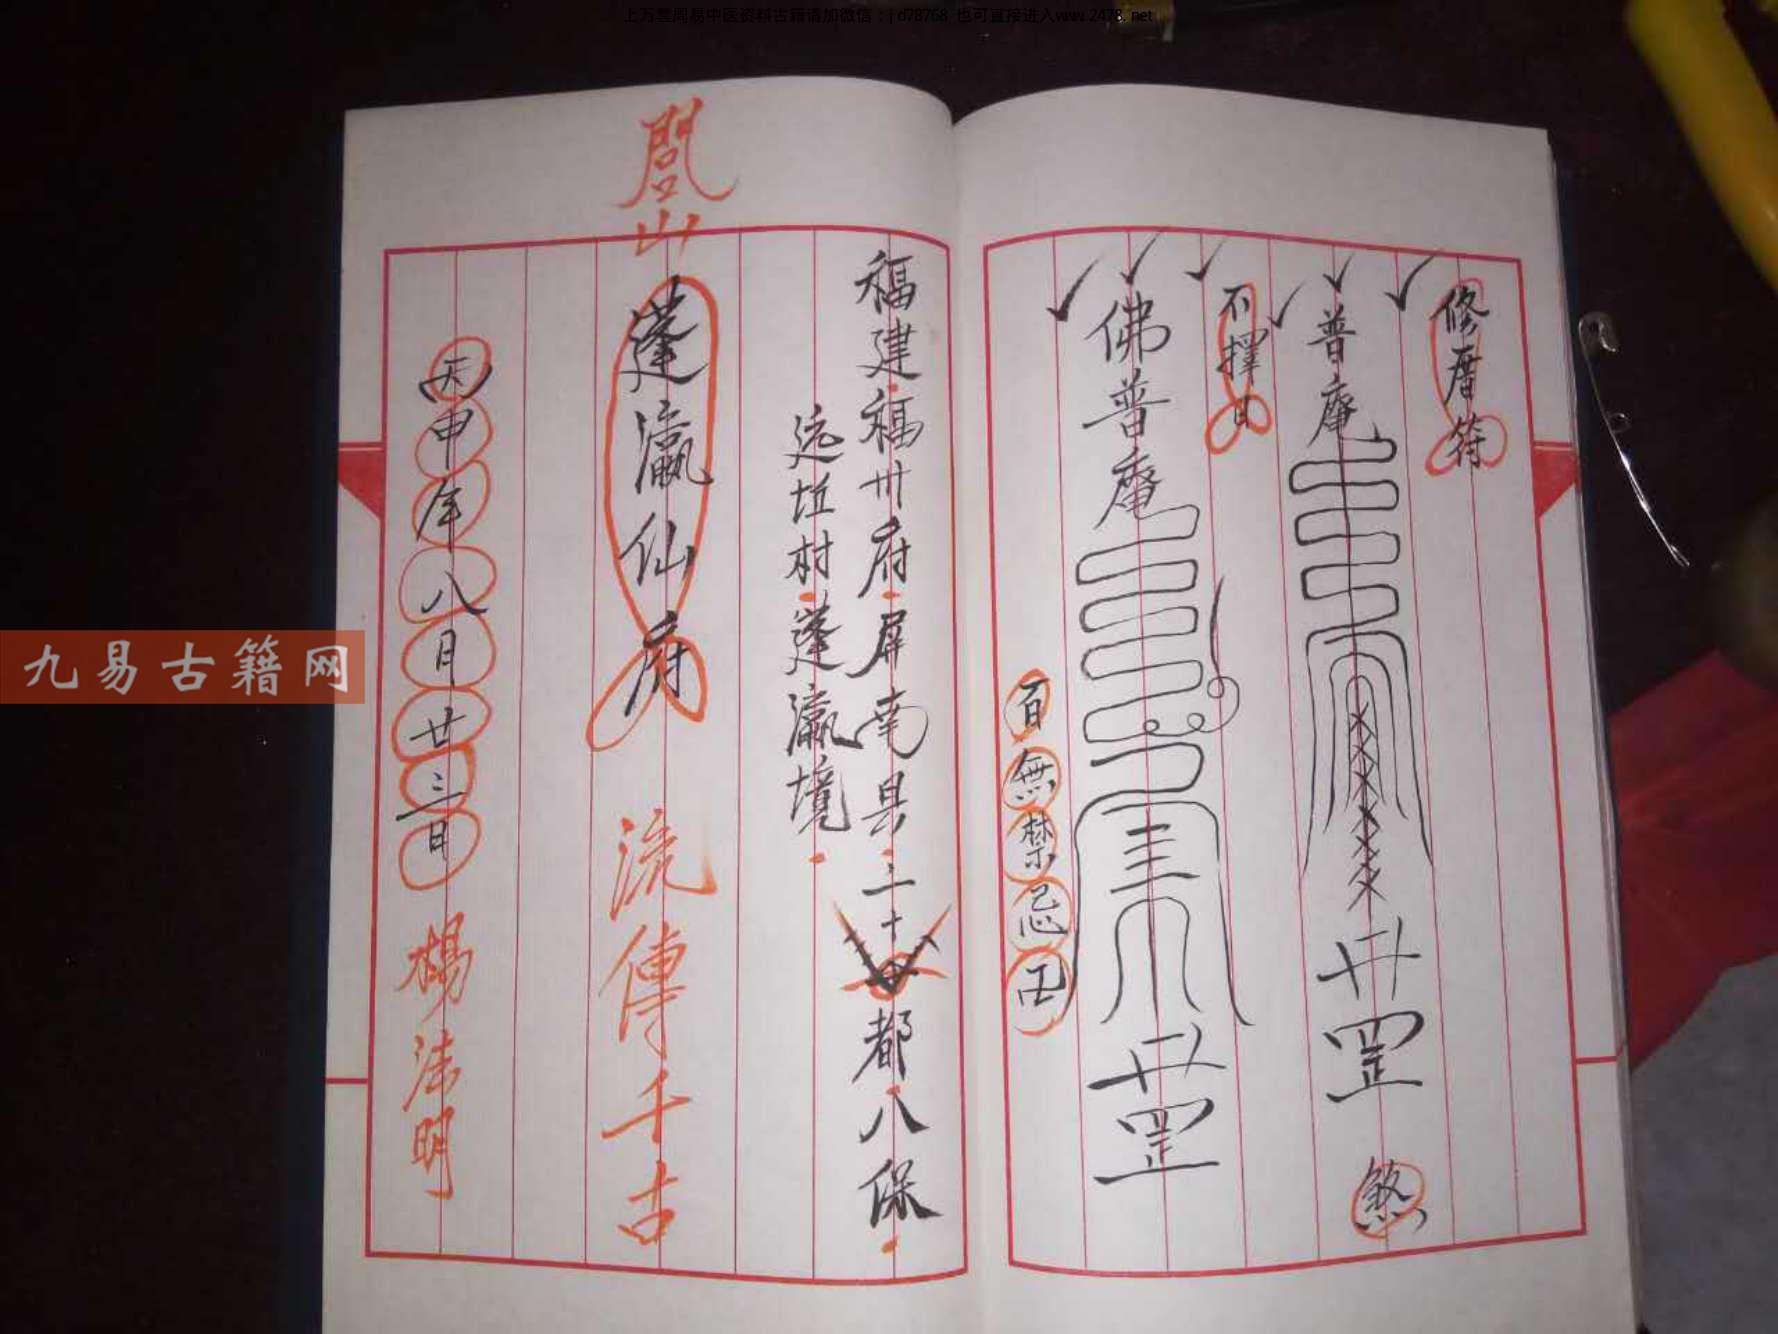 上万套周易中医资料古籍请加微信:jd78768 也可直接进入www.2478.net
修厝符
普庵
罡
煞
不擇日
佛普庵
罡
百無禁忌卍
福建福州府屏南具三十
都八保
远坵村蓬瀛境
閭山
蓬瀛仙府
流傳千古
丙申年八月廿三日
楊法明
九易古籍网